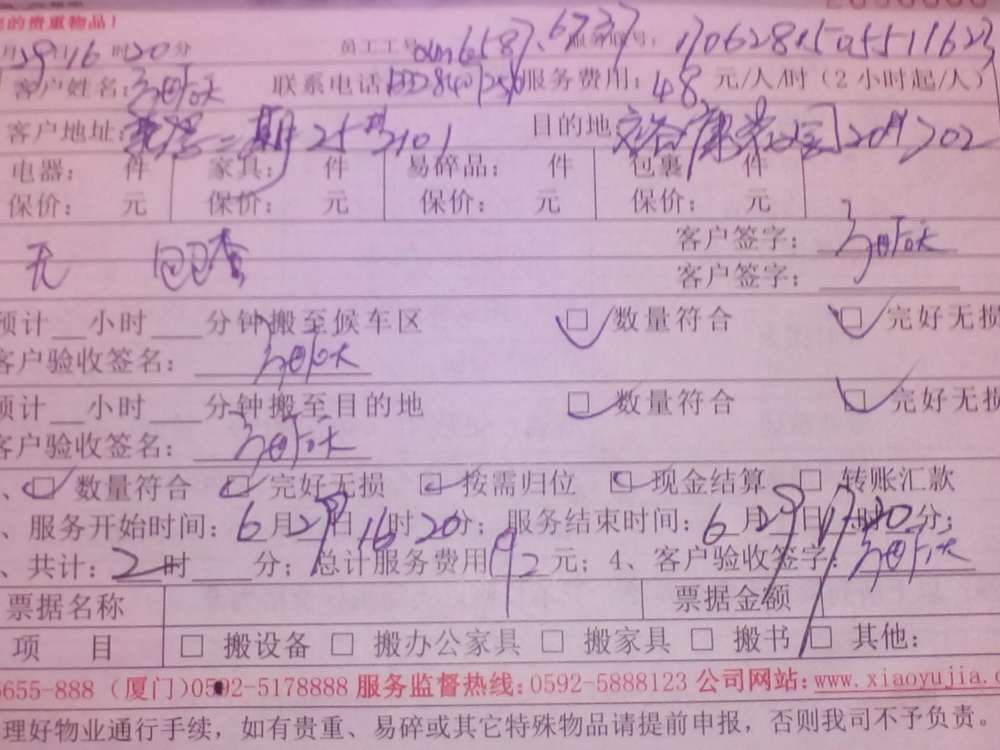 的贵重物品!
月29日16时20分 员工工号 6587、6737 服务单号: 170628150551162​3
客户姓名: 联系电话 服务费用: 48 元/人/时（2小时起/人）
客户地址: 二期25 101 目的地 202
电器: 件 家具: 件 易碎品: 件 包裹 件
保价: 元 保价: 元 保价: 元 保价: 元
无 客户签字:
客户签字:
预计__小时___分钟搬至候车区 □ 数量符合 □ 完好无损
客户验收签名:
预计__小时___分钟搬至目的地 □ 数量符合 □ 完好无损
客户验收签名:
、□ 数量符合 □ 完好无损 □ 按需归位 □ 现金结算 □ 转账汇款
、服务开始时间: 6月29日16时20分; 服务结束时间: 6月29日17时 分;
、共计: 2时___分; 总计服务费用192元; 4、客户验收签字:
票据名称 票据金额
项 目 □ 搬设备 □ 搬办公家具 □ 搬家具 □ 搬书 □ 其他:
5655-888（厦门）0592-5178888 服务监督热线:0592-5888123 公司网站:www.xiaoyujia.c
理好物业通行手续，如有贵重、易碎或其它特殊物品请提前申报，否则我司不予负责。